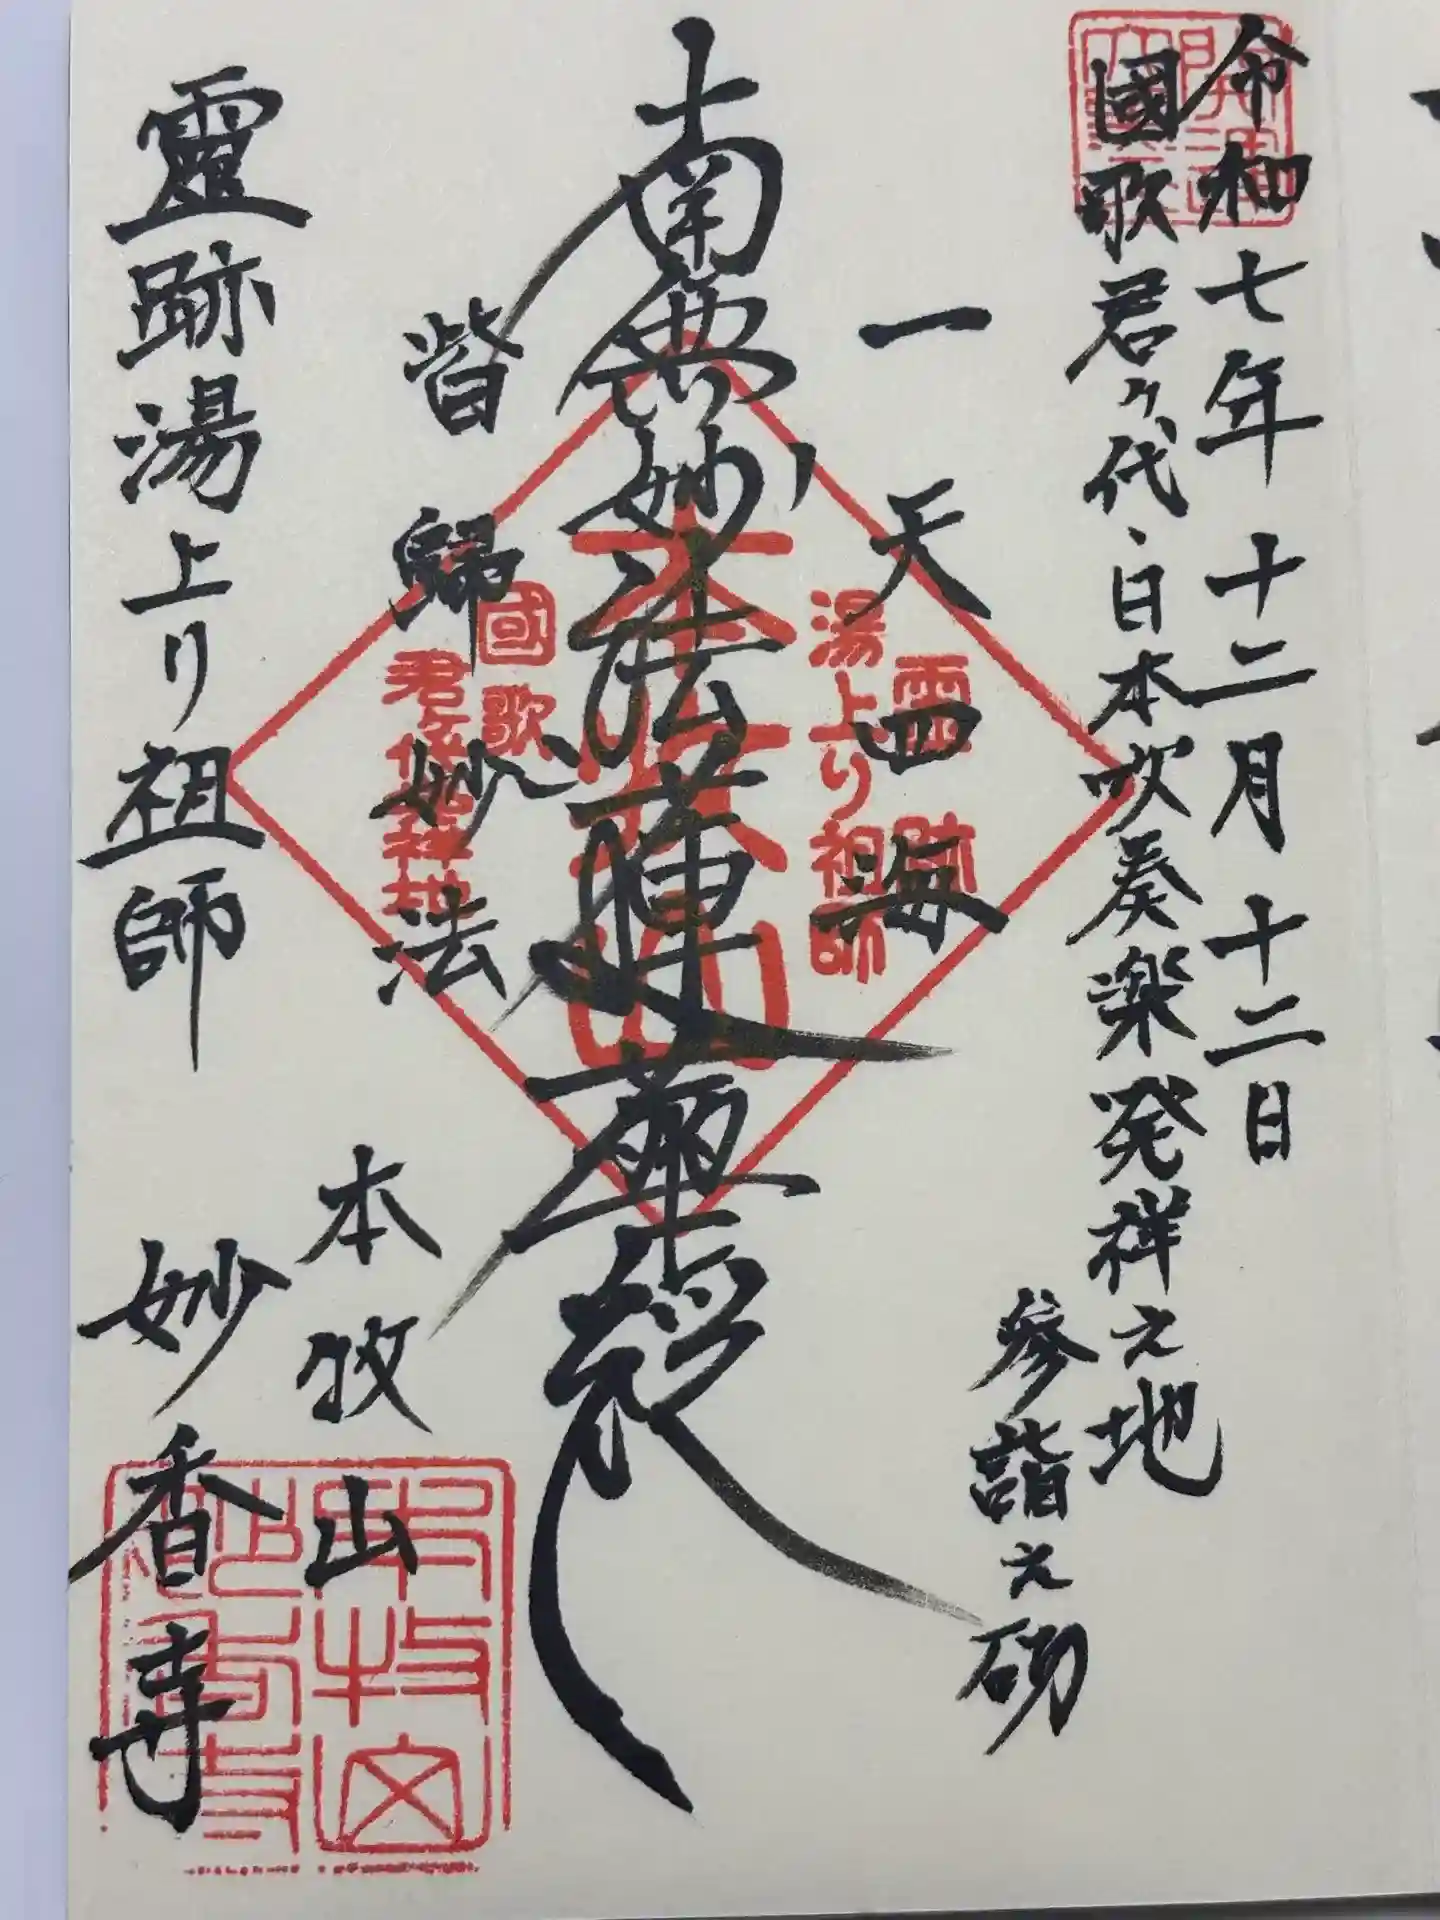 令和七年十二月十二日
國歌君ヶ代、日本吹奏楽発祥之地
参詣之砌
一天四海
南無妙法蓮華経
皆歸妙法
霊跡湯上り祖師
本牧山
妙香寺
霊跡
湯上り祖師
本牧山
國歌
君ヶ代発祥地